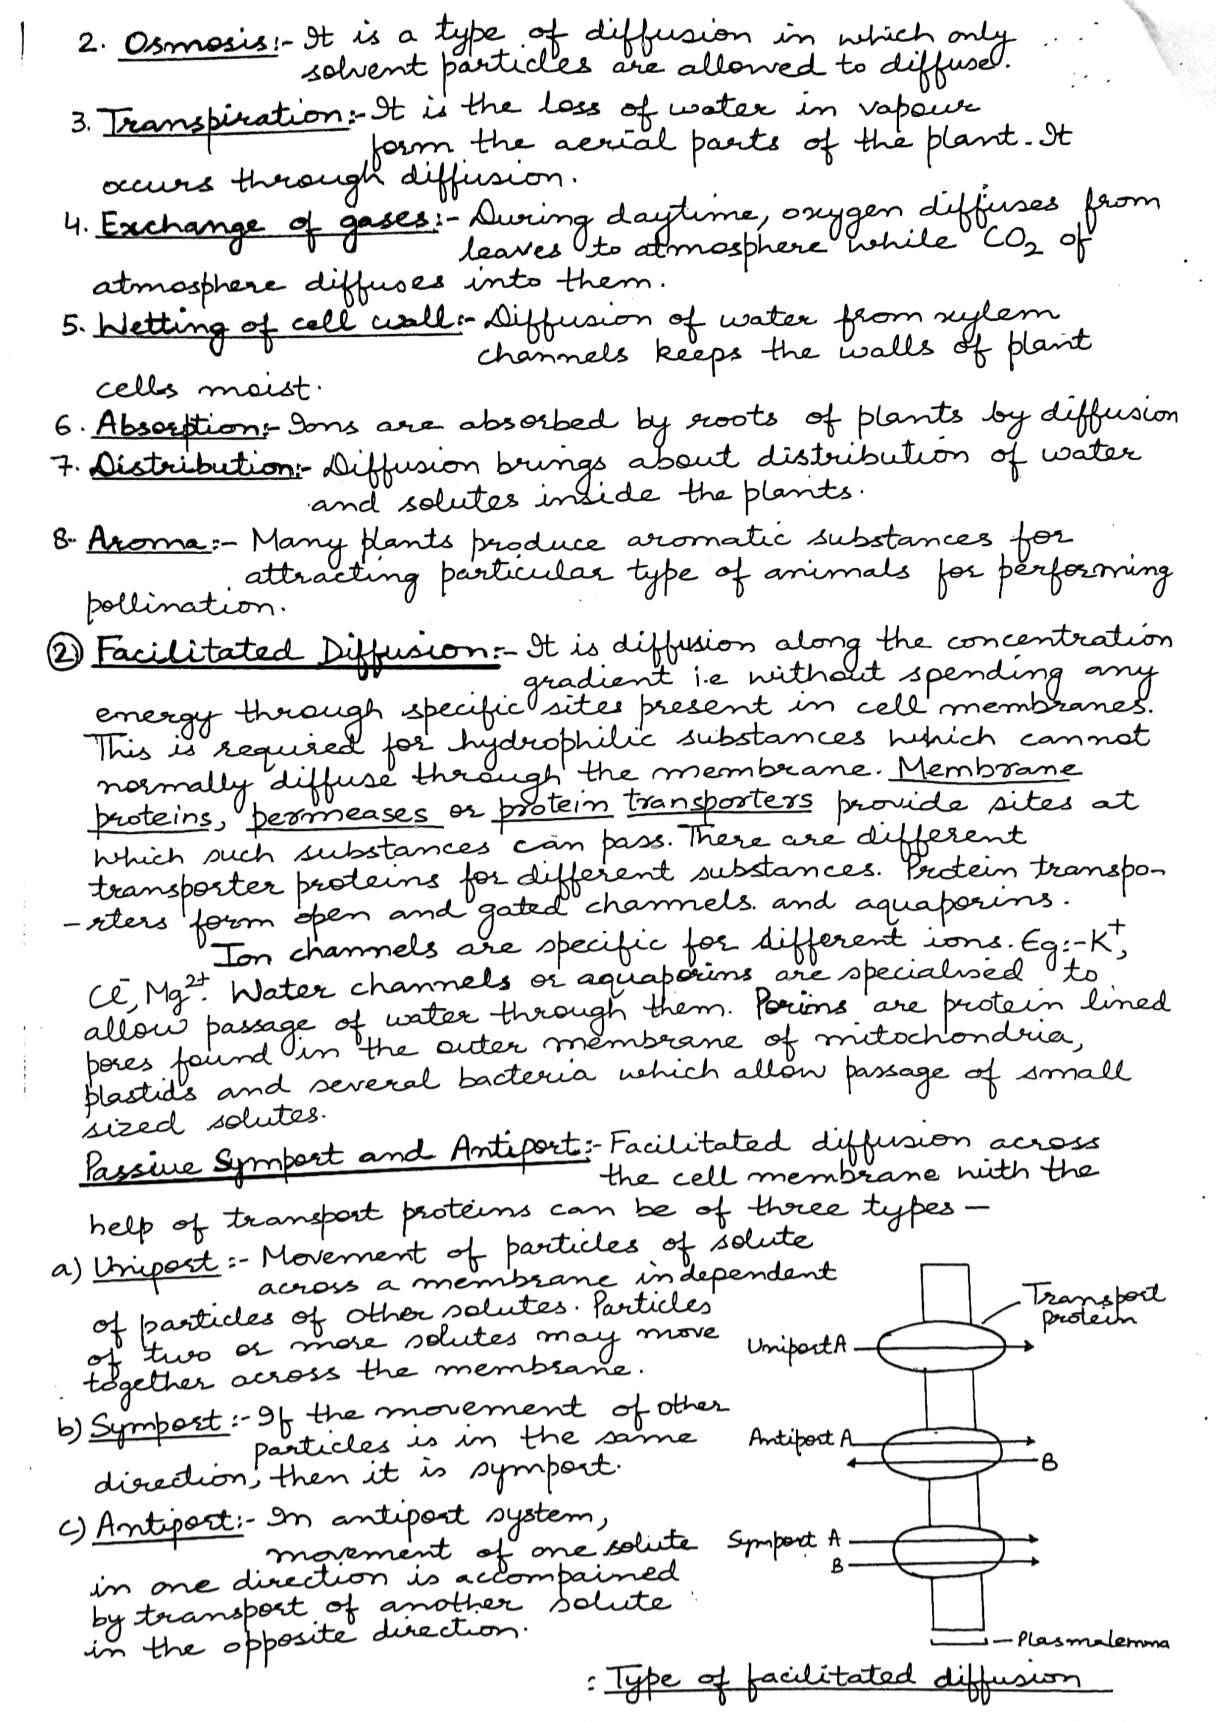 2. Osmosis:- It is a type of diffusion in which only
solvent particles are allowed to diffuse.
3. Transpiration:- It is the loss of water in vapour
form the aerial parts of the plant. It
occurs through diffusion.
4. Exchange of gases:- During daytime, oxygen diffuses from
leaves to atmosphere while CO₂ of
atmosphere diffuses into them.
5. Wetting of cell wall:- Diffusion of water from xylem
channels keeps the walls of plant
cells moist.
6. Absorption:- Ions are absorbed by roots of plants by diffusion
7. Distribution:- Diffusion brings about distribution of water
and solutes inside the plants.
8. Aroma:- Many plants produce aromatic substances for
attracting particular type of animals for performing
pollination.
② Facilitated Diffusion:- It is diffusion along the concentration
gradient i.e without spending any
energy through specific sites present in cell membranes.
This is required for hydrophilic substances which cannot
normally diffuse through the membrane. Membrane
proteins, permeases or protein transporters provide sites at
which such substances can pass. There are different
transporter proteins for different substances. Protein transpo-
-rters form open and gated channels. and aquaporins.
Ion channels are specific for different ions. Eg:- K⁺,
Cl⁻, Mg²⁺. Water channels or aquaporins are specialised to
allow passage of water through them. Porins are protein lined
pores found in the outer membrane of mitochondria,
plastids and several bacteria which allow passage of small
sized solutes.
Passive Symport and Antiport:- Facilitated diffusion across
the cell membrane with the
help of transport proteins can be of three types —
a) Uniport:- Movement of particles of solute
across a membrane independent
of particles of other solutes. Particles
of two or more solutes may move
together across the membrane.
b) Symport:- If the movement of other
particles is in the same
direction, then it is symport.
c) Antiport:- In antiport system,
movement of one solute
in one direction is accompained
by transport of another solute
in the opposite direction.
Transport
protein
Uniport A
Antiport A
B
Symport A
B
Plasmalemma
: Type of facilitated diffusion